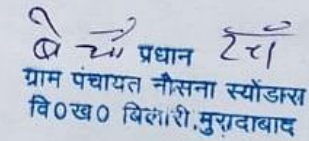 प्रधान
ग्राम पंचायत नौसना स्योंडारा
वि०ख० बिलारी, मुरादाबाद